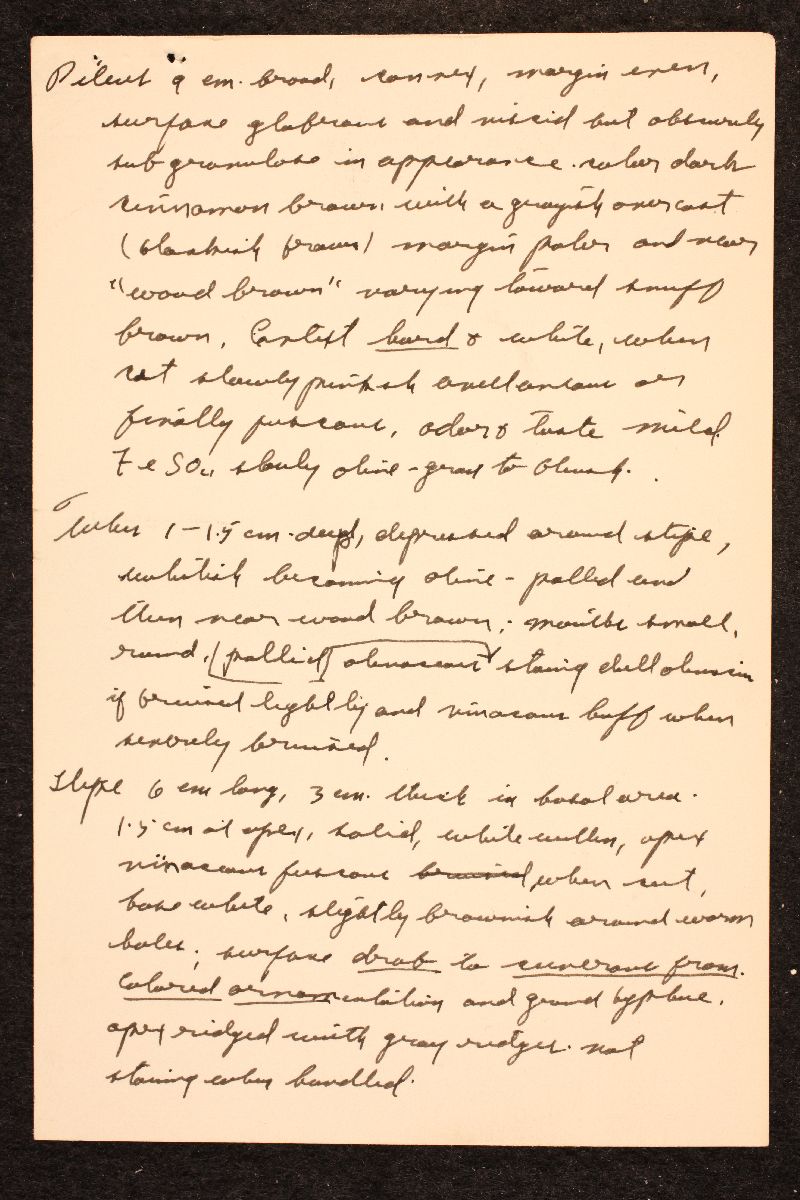 Pileus 9 cm. broad, convex, margin even,
surface glabrous and viscid but obscurely
subgranulose in appearance. color dark
cinnamon brown with a grayish overcast
(blackish brown) margin paler and near
"wood brown" varying toward snuff
brown. Context hard & white, when
cut slowly pinkish avellaneous or
finally fuscous, odor & taste mild.
FeSO4 slowly olive-gray to bluish.
Tubes 1-1.5 cm. deep, depressed around stipe,
whitish becoming olive-pallid and
then near wood brown; mouths small,
round, (pallid) olivaceous staining dull
if bruised lightly and vinaceous buff when
severely bruised.
Stipe 6 cm long, 3 cm. thick in basal area.
1.5 cm at apex, solid, white within, apex
vinaceous fuscous bruised when cut,
base white, slightly brownish around worm
holes; surface drab to from
colored ornamentation and ground .
apex ridged with gray ridges. not
staining when handled.